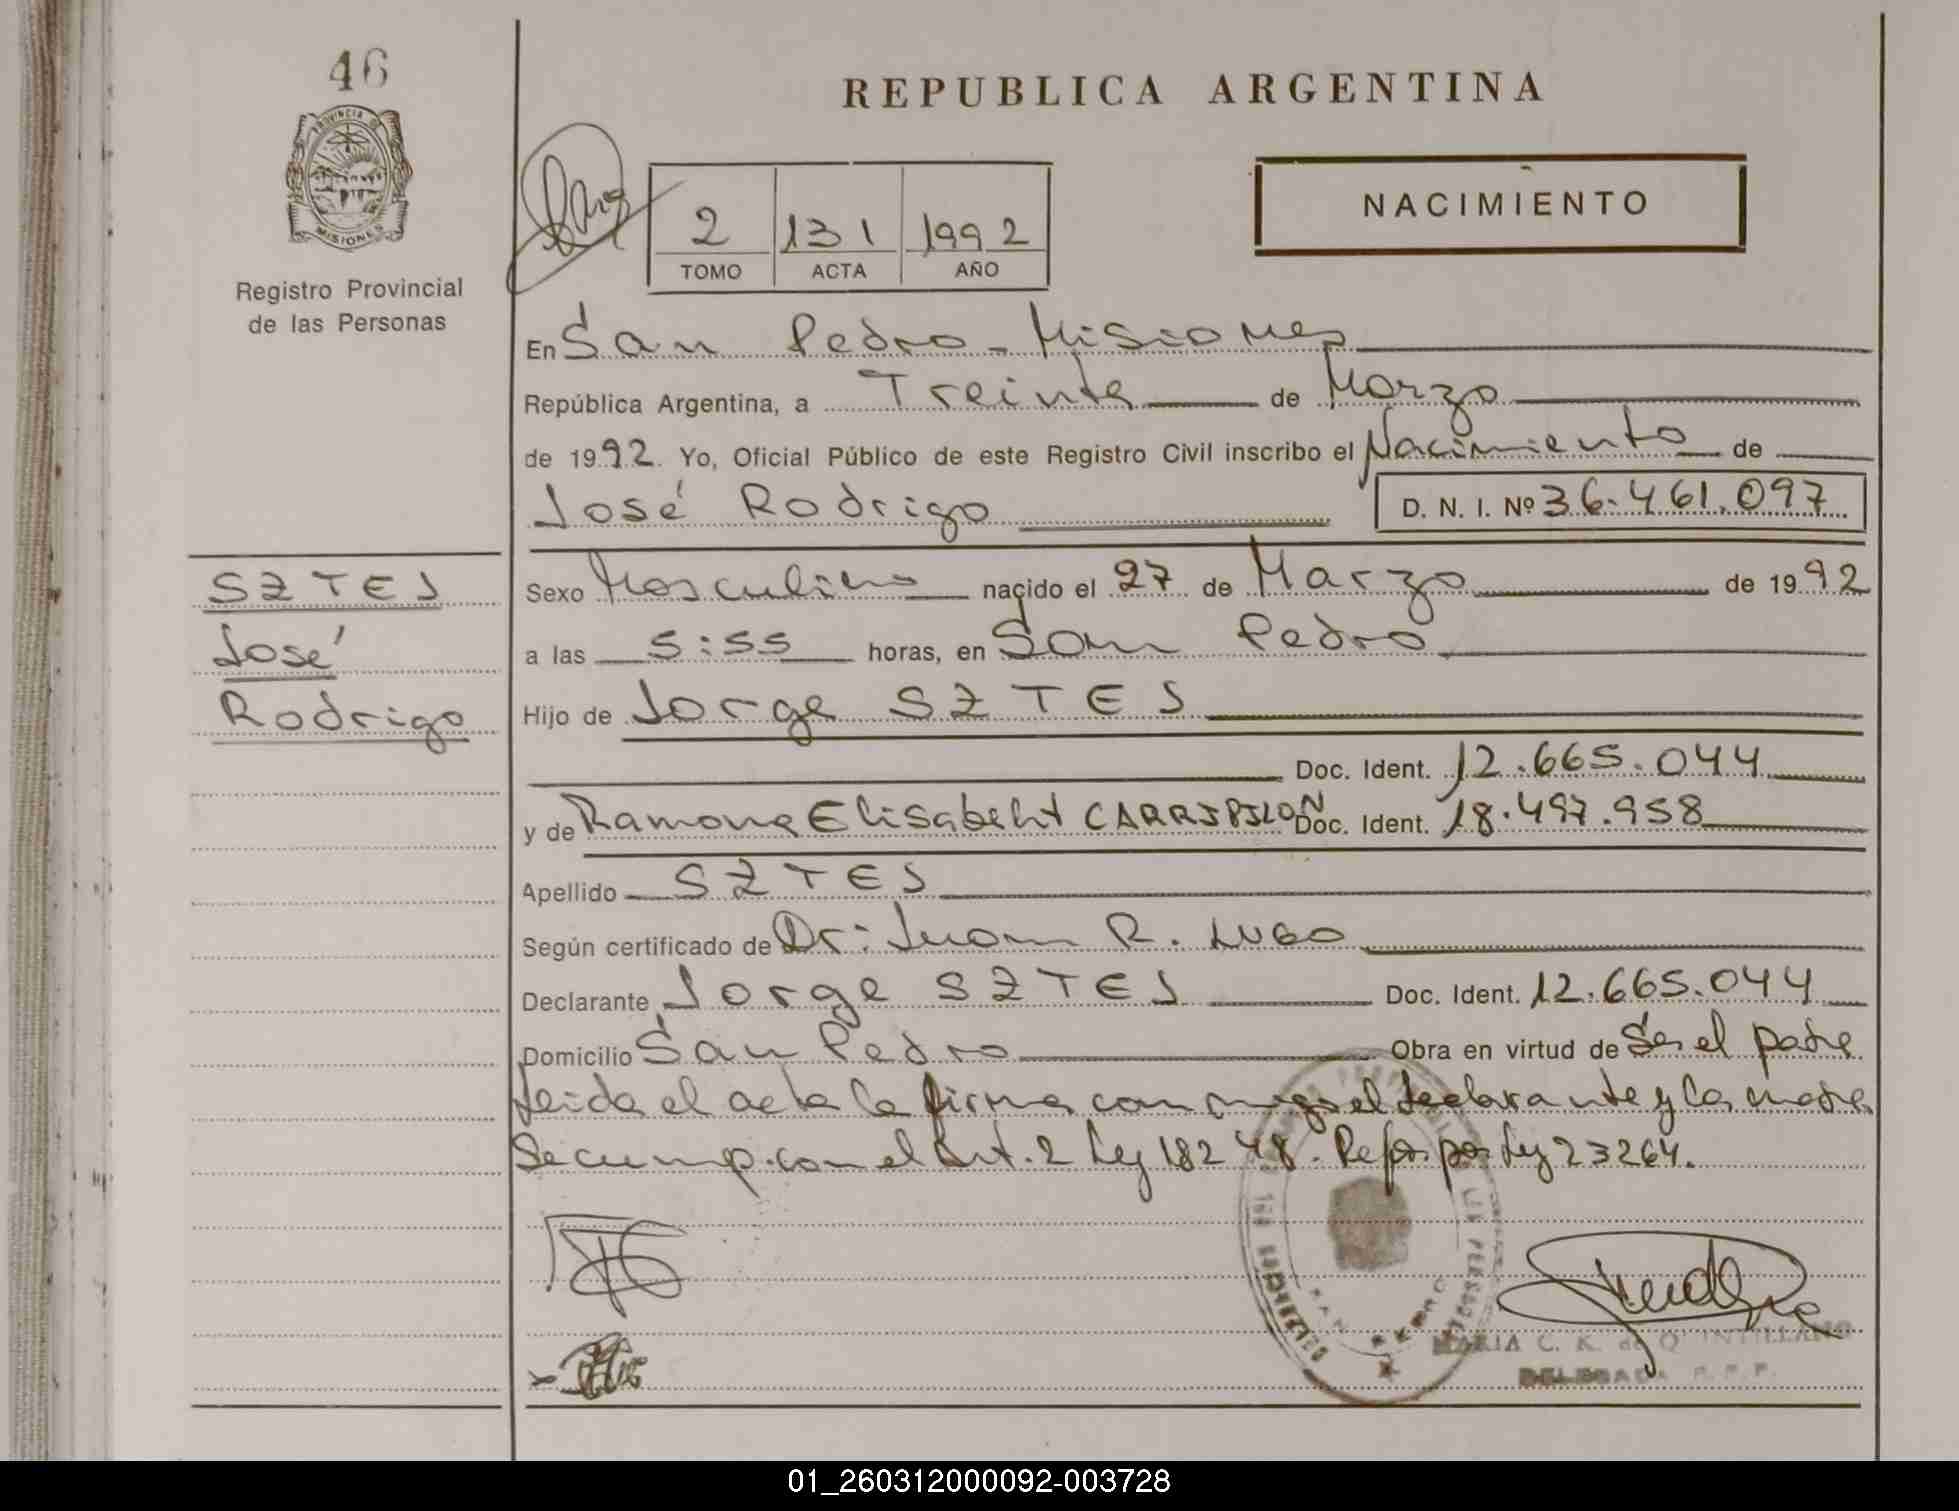 46
PROVINCIA DE
MISIONES
Registro Provincial
de las Personas
REPUBLICA ARGENTINA
NACIMIENTO
2 131 1992
TOMO ACTA AÑO
En San Pedro - Misiones
República Argentina, a Treinta de Marzo
de 1992. Yo, Oficial Público de este Registro Civil inscribo el Nacimiento de
José Rodrigo D. N. I. Nº 36.461.097
SZTES
José
Rodrigo
Sexo Masculino nacido el 27 de Marzo de 1992
a las 5:55 horas, en San Pedro
Hijo de Jorge SZTES
Doc. Ident. 12.665.044
y de Ramona Elisabeht CARRIPILON Doc. Ident. 18.497.958
Apellido SZTES
Según certificado de Dr: Juan R. LUGO
Declarante Jorge SZTES Doc. Ident. 12.665.044
Domicilio San Pedro Obra en virtud de Ser el padre
Leida el acta la firma con migo el declarante y la madre
Se cump. con el Art. 2 Ley 18248. Refor por Ley 23264.
SAN PEDRO
MARIA C. K. de QUINTILLANO
DELEGADA R. P. P.
01_260312000092-003728